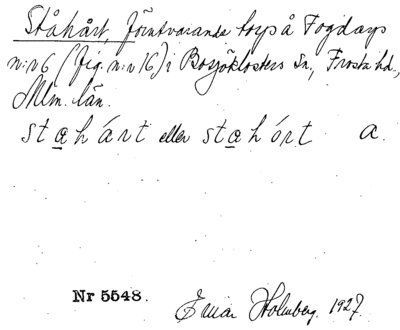 Ståhårt, förutvarande torp å Fogdarps
n:r 6 (fig. n:r 16) i Bosjöklosters sn., Frosta hd.,
Mlm. län.
stạhárt eller stạhórt a.
Nr 5548. Einar Holmberg. 1927.